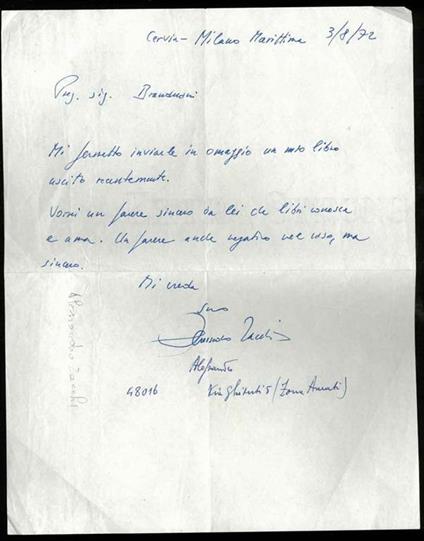 Cervia - Milano Marittima 3/8/72
Preg. sig. Branduani
Mi permetto inviarle in omaggio un mio libro
uscito recentemente.
Vorrei un parere sincero da lei che libri conosce
e ama. Un parere anche negativo nel caso, ma
sincero.
Mi creda
suo
Alessandro
48016 Via
Alessandro Zacchi